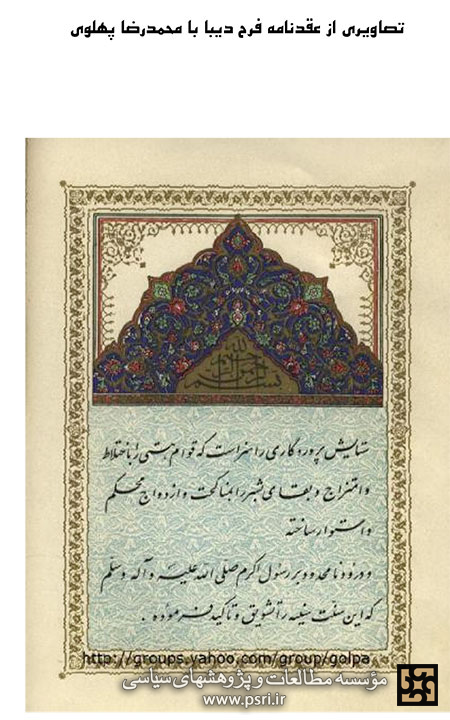 تصاویری از عقدنامه فرح دیبا با محمدرضا پهلوی
بسم الله الرحمن الرحیم
ستایش پروردگاری را سزاست که قوام هستی را با ختلاط
و امتزاج و بقای بشر را بمناکحت و ازدواج محکم
و استوار ساخته
و درود نامحدود بر رسول اکرم صلی الله علیه و آله وسلم
که این سنت سنیه را تشویق و تاکید فرموده .
http://groups.yahoo.com/group/golpa
مؤسسه مطالعات و پژوهشهای سیاسی
www.psri.ir